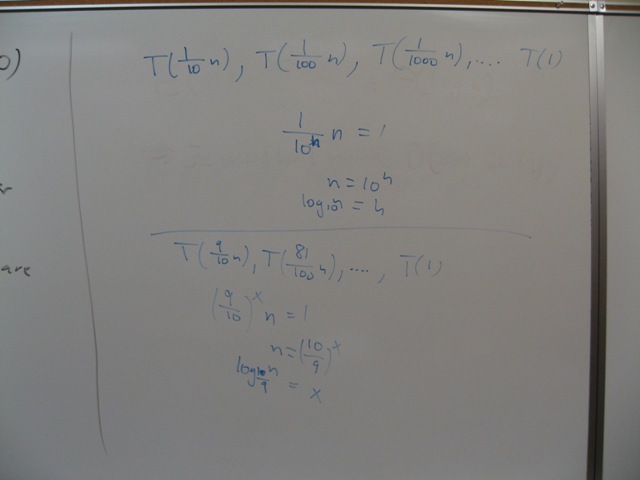 0)
T(1/10 n), T(1/100 n), T(1/1000 n),.... T(1)
1/10^h n = 1
n = 10^h
log₁₀n = h
are
T(9/10 n), T(81/100 n),...., T(1)
(9/10)^x n = 1
n = (10/9)^x
log_10/9 n = x